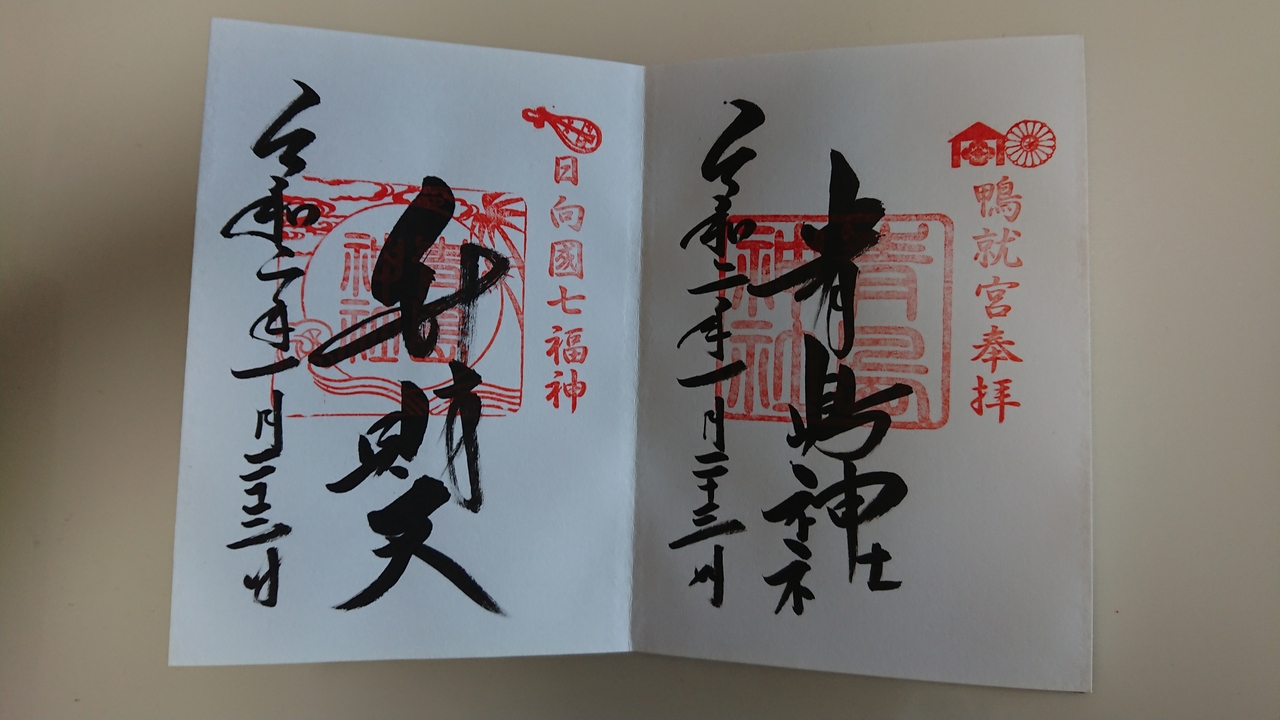 鴨就宮奉拝
青島神社
青島神社
令和二年一月二十三日
日向國七福神
弁財天
青島神社
令和二年一月二十三日